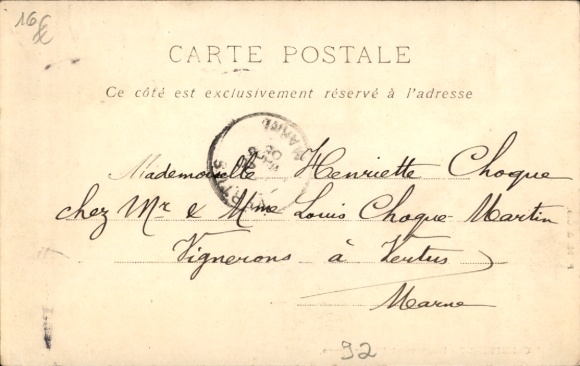 16
CARTE POSTALE
Ce côté est exclusivement réservé à l'adresse
MARNE
VERTUS
Mademoiselle Henriette Choque
chez Mr & Mme Louis Choque-Martin
Vignerons à Vertus
Marne
92